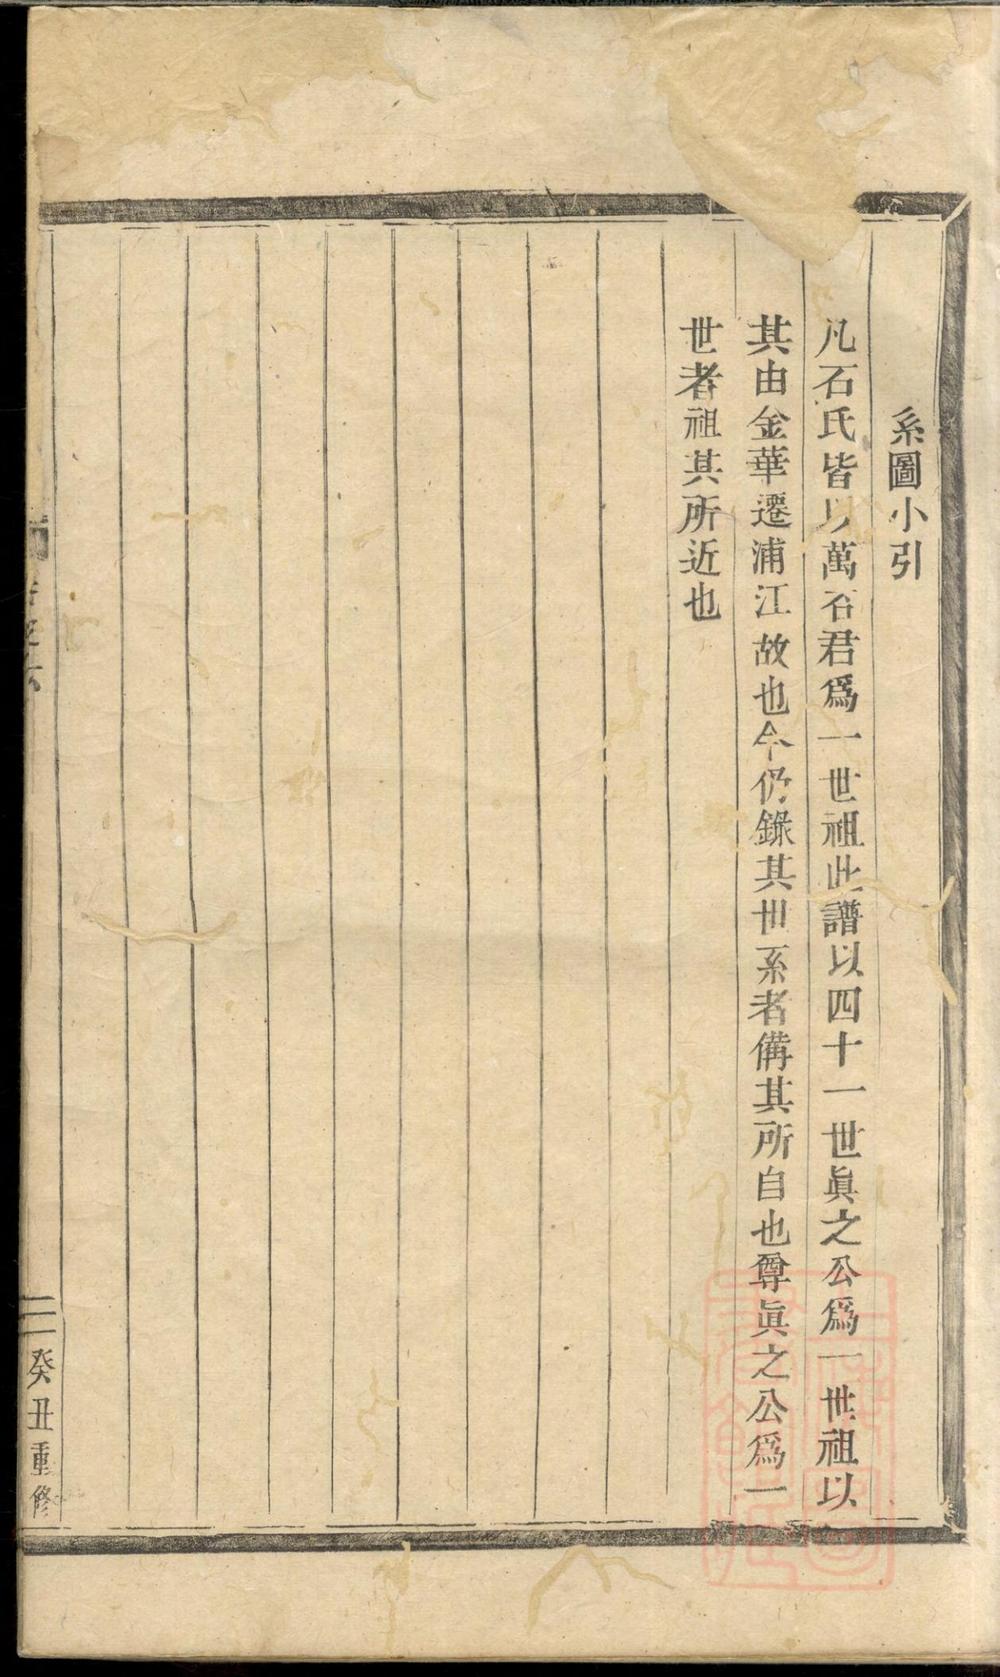 系圖小引
凡石氏皆以萬石君爲一世祖此譜以四十一世眞之公爲一世祖以
其由金華遷浦江故也今仍錄其世系者備其所自也尊眞之公爲一
世者祖其所近也
二癸丑重修